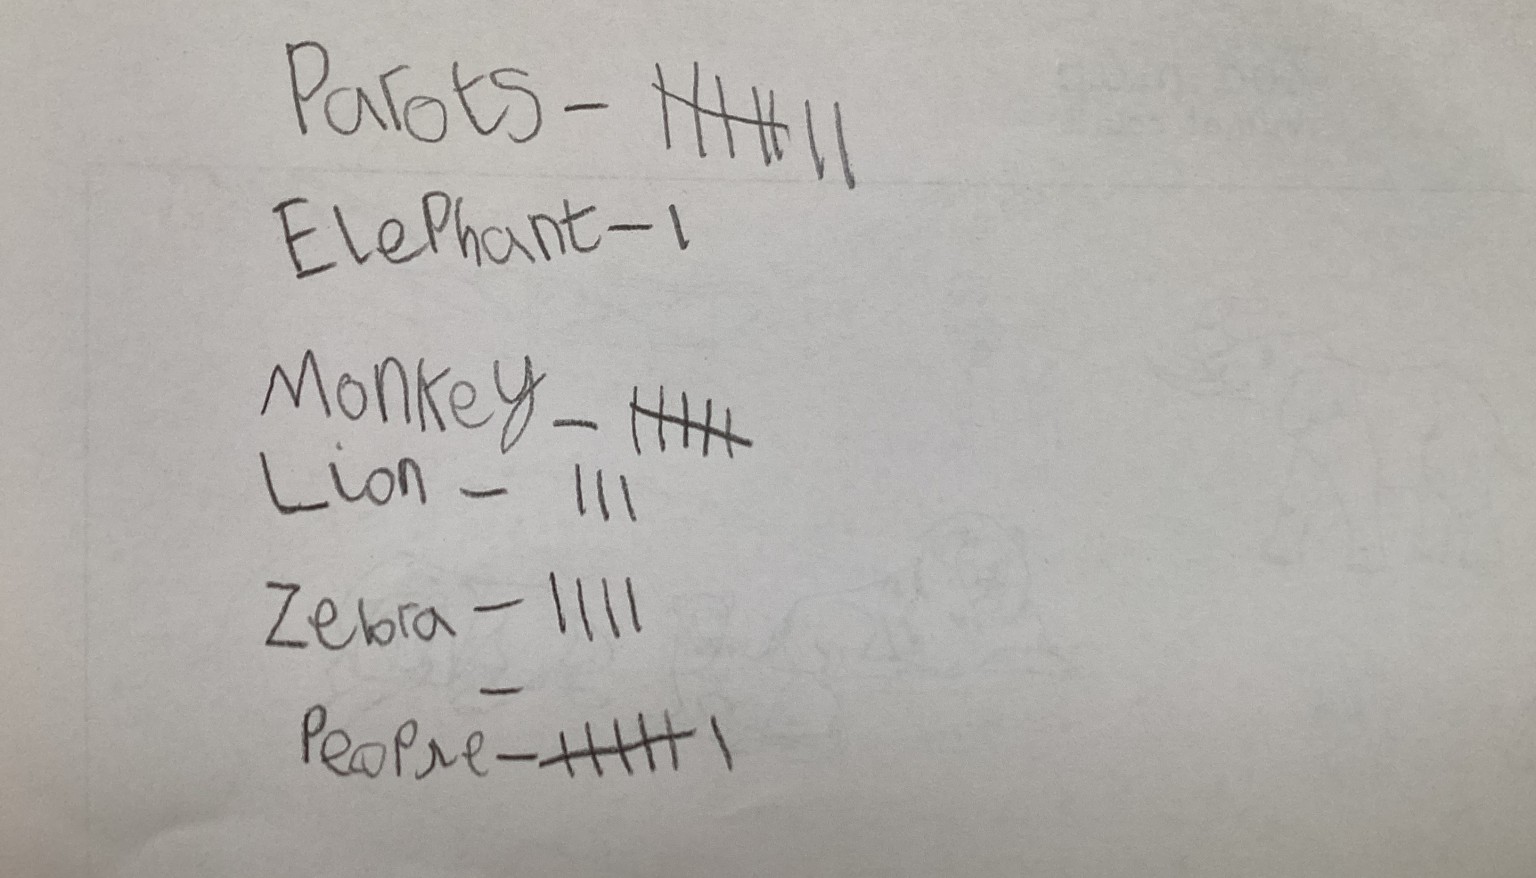 Parots - 卌 ||
Elephant - |
Monkey - 卌
Lion - |||
Zebra - ||||
-
Peopre - 卌 |